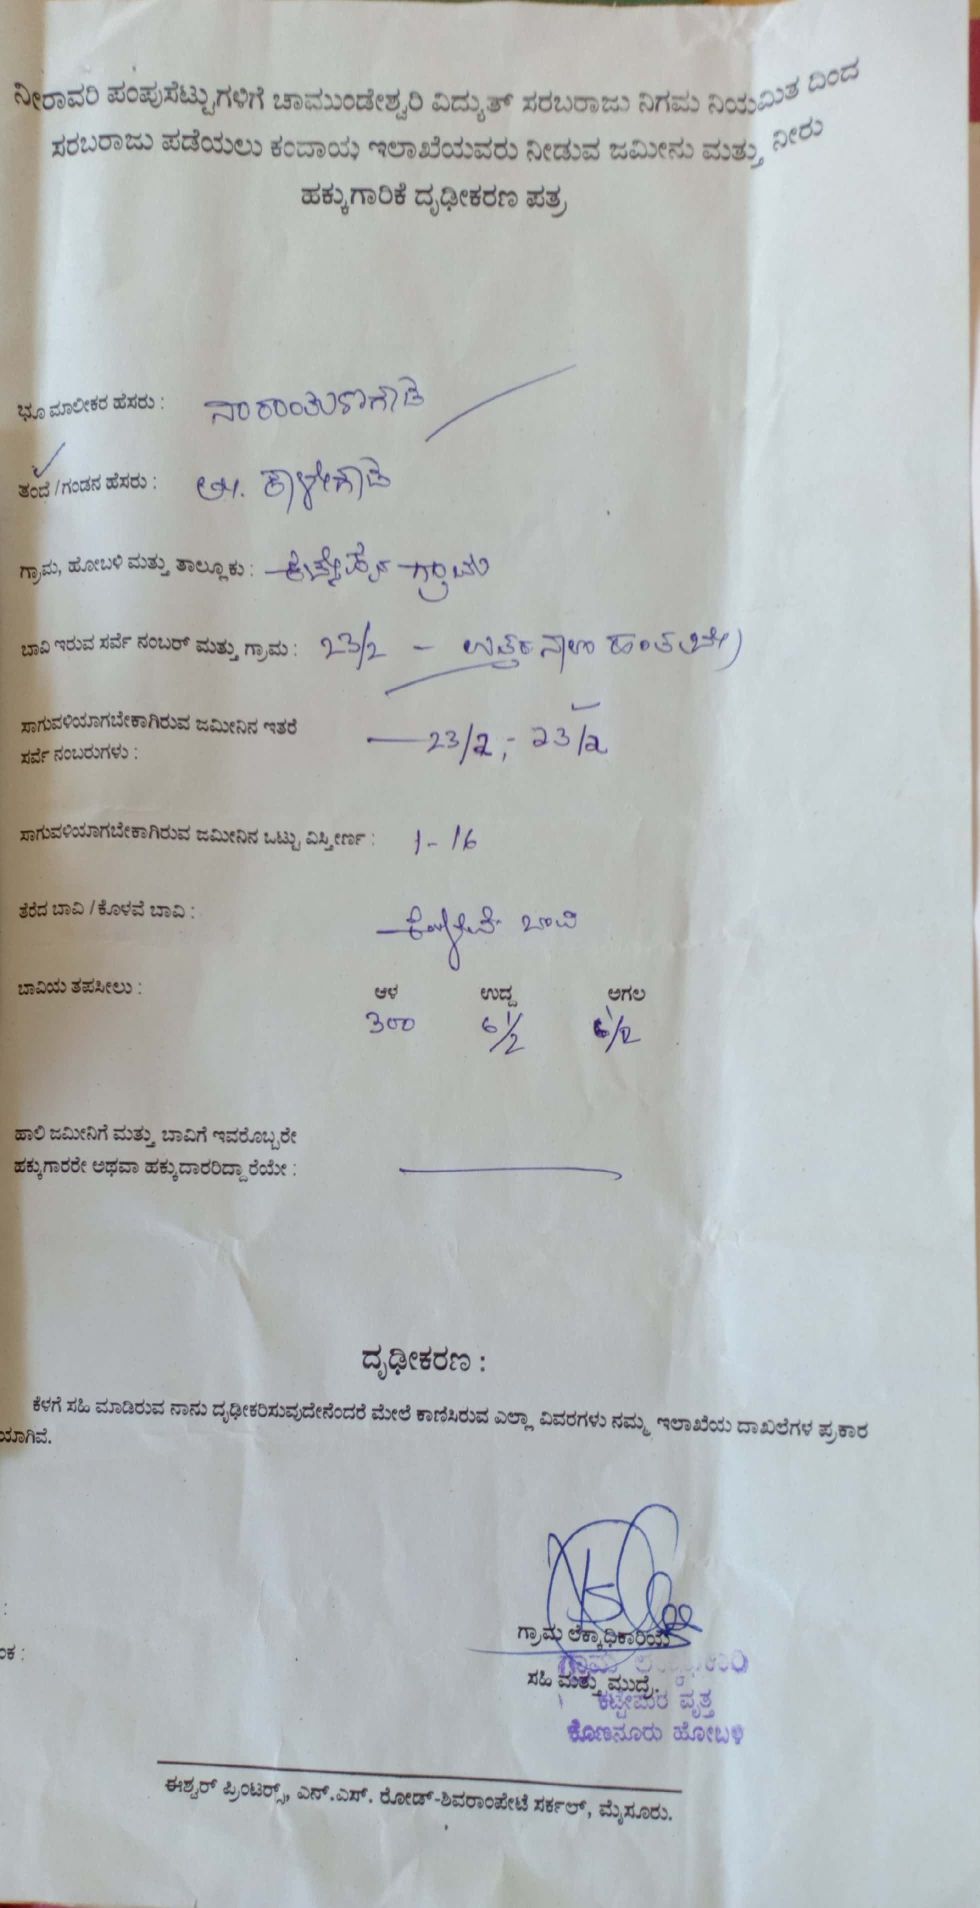 ನೀರಾವರಿ ಪಂಪುಸೆಟ್ಟುಗಳಿಗೆ ಚಾಮುಂಡೇಶ್ವರಿ ವಿದ್ಯುತ್ ಸರಬರಾಜು ನಿಗಮ ನಿಯಮಿತ ದಿಂದ
ಸರಬರಾಜು ಪಡೆಯಲು ಕಂದಾಯ ಇಲಾಖೆಯವರು ನೀಡುವ ಜಮೀನು ಮತ್ತು ನೀರು
ಹಕ್ಕುಗಾರಿಕೆ ದೃಢೀಕರಣ ಪತ್ರ
ಭೂ ಮಾಲೀಕರ ಹೆಸರು :
ತಂದೆ / ಗಂಡನ ಹೆಸರು : ಕಾಳೇಗೌಡ
ಗ್ರಾಮ, ಹೋಬಳಿ ಮತ್ತು ತಾಲ್ಲೂಕು : ಗ್ರಾಮ
ಬಾವಿ ಇರುವ ಸರ್ವೆ ನಂಬರ್ ಮತ್ತು ಗ್ರಾಮ : 23/2 -
ಸಾಗುವಳಿಯಾಗಬೇಕಾಗಿರುವ ಜಮೀನಿನ ಇತರೆ
ಸರ್ವೆ ನಂಬರುಗಳು : 23/2, - 23/2
ಸಾಗುವಳಿಯಾಗಬೇಕಾಗಿರುವ ಜಮೀನಿನ ಒಟ್ಟು ವಿಸ್ತೀರ್ಣ : 1-16
ತೆರೆದ ಬಾವಿ / ಕೊಳವೆ ಬಾವಿ : ಕೊಳವೆ ಬಾವಿ
ಬಾವಿಯ ತಪಸೀಲು : ಆಳ ಉದ್ದ ಅಗಲ
300 6 1/2 6 1/2
ಹಾಲಿ ಜಮೀನಿಗೆ ಮತ್ತು ಬಾವಿಗೆ ಇವರೊಬ್ಬರೇ
ಹಕ್ಕುಗಾರರೇ ಅಥವಾ ಹಕ್ಕುದಾರರಿದ್ದಾರೆಯೇ :
ದೃಢೀಕರಣ :
ಕೆಳಗೆ ಸಹಿ ಮಾಡಿರುವ ನಾನು ದೃಢೀಕರಿಸುವುದೇನೆಂದರೆ ಮೇಲೆ ಕಾಣಿಸಿರುವ ಎಲ್ಲಾ ವಿವರಗಳು ನಮ್ಮ ಇಲಾಖೆಯ ದಾಖಲೆಗಳ ಪ್ರಕಾರ
ಯಾಗಿವೆ.
ಗ್ರಾಮ ಲೆಕ್ಕಾಧಿಕಾರಿಯ
ಗ್ರಾಮ ಲೆಕ್ಕಾಧಿಕಾರಿ
ಸಹಿ ಮತ್ತು ಮುದ್ರೆ.
ಕಟ್ಟೇಪುರ ವೃತ್ತ
ಕೊಣನೂರು ಹೋಬಳಿ
ಈಶ್ವರ್ ಪ್ರಿಂಟರ್ಸ್, ಎನ್.ಎಸ್. ರೋಡ್-ಶಿವರಾಂಪೇಟೆ ಸರ್ಕಲ್, ಮೈಸೂರು.